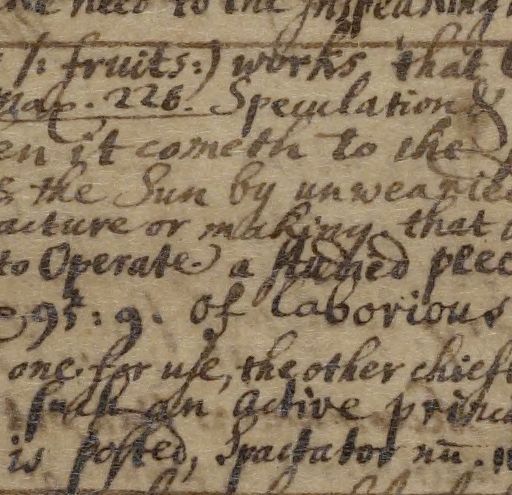 need to the Inspeaking
/: fruits:) works that
Mar. 226. Speculation &
en it cometh to the
s the Sun by unwearied
acture or making. that
to Operate.) a studied piec
95: 9. of laborious
one for use, the other chiefl
such an active princi
is posted, Spactator nu.